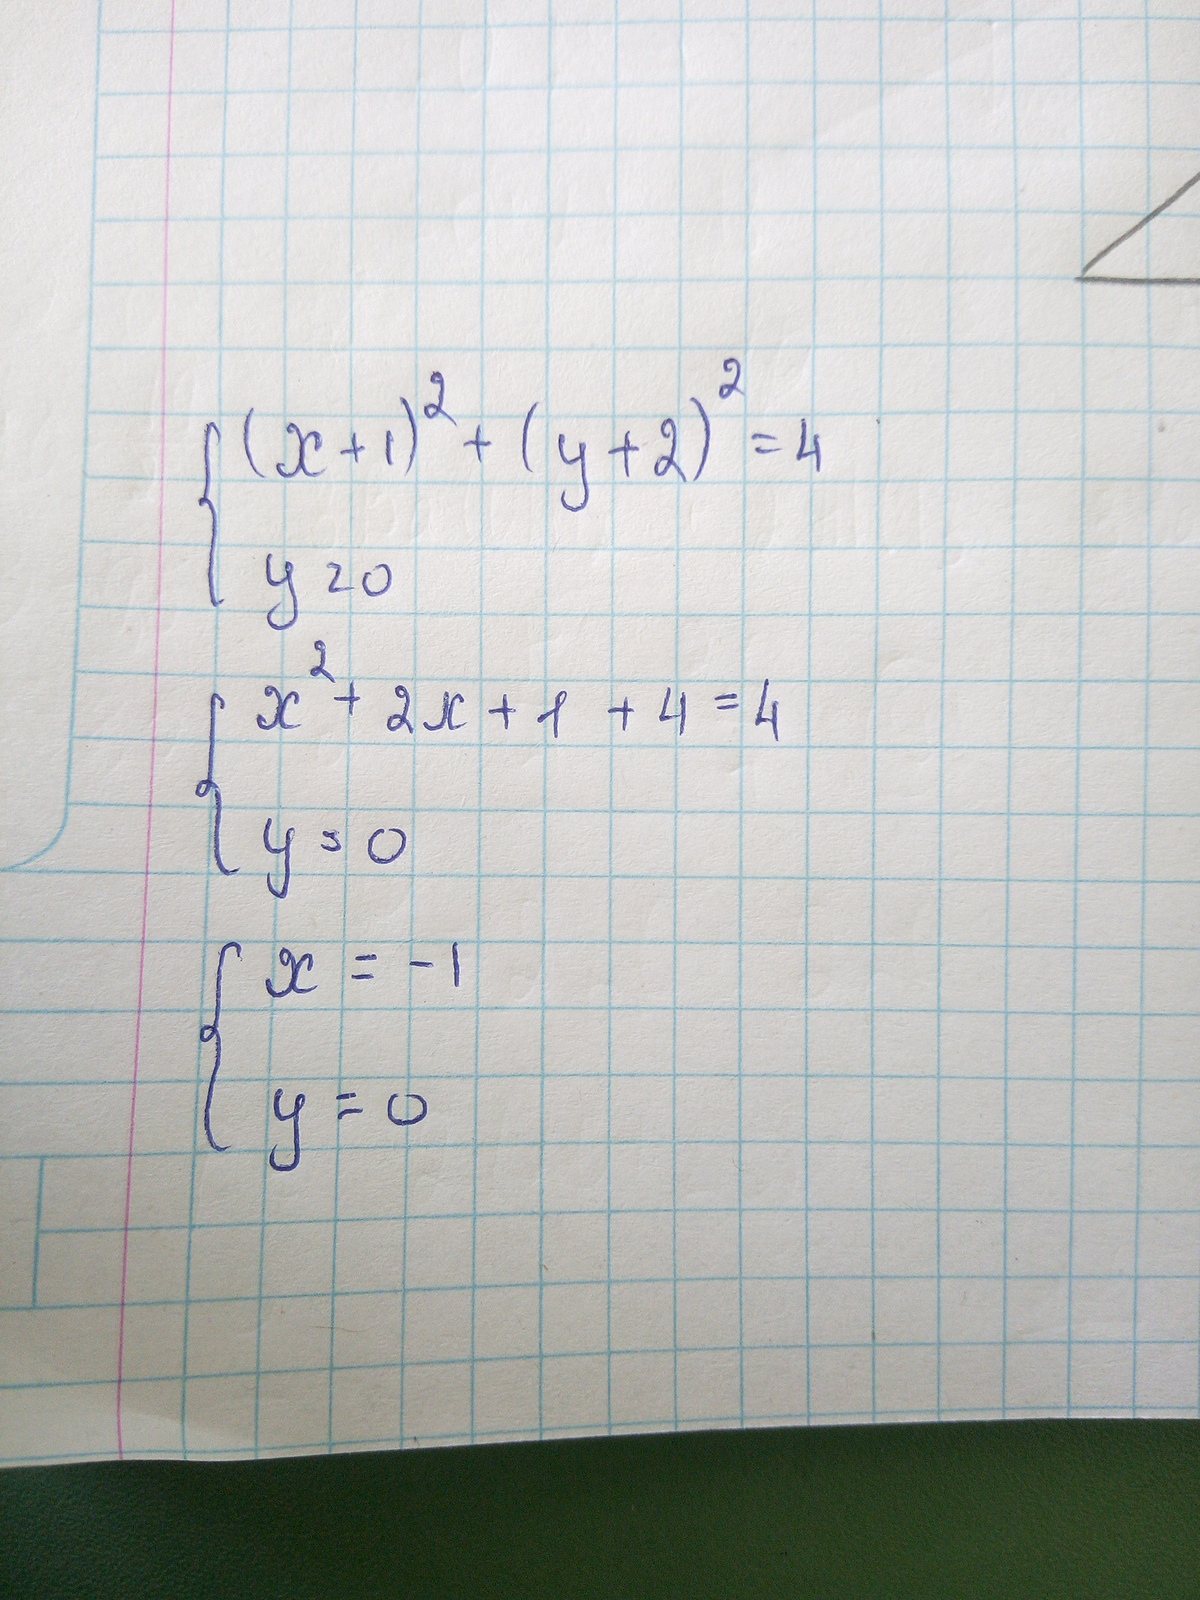 (x+1)² + (y+2)² = 4
y = 0
x² + 2x + 1 + 4 = 4
y = 0
x = -1
y = 0